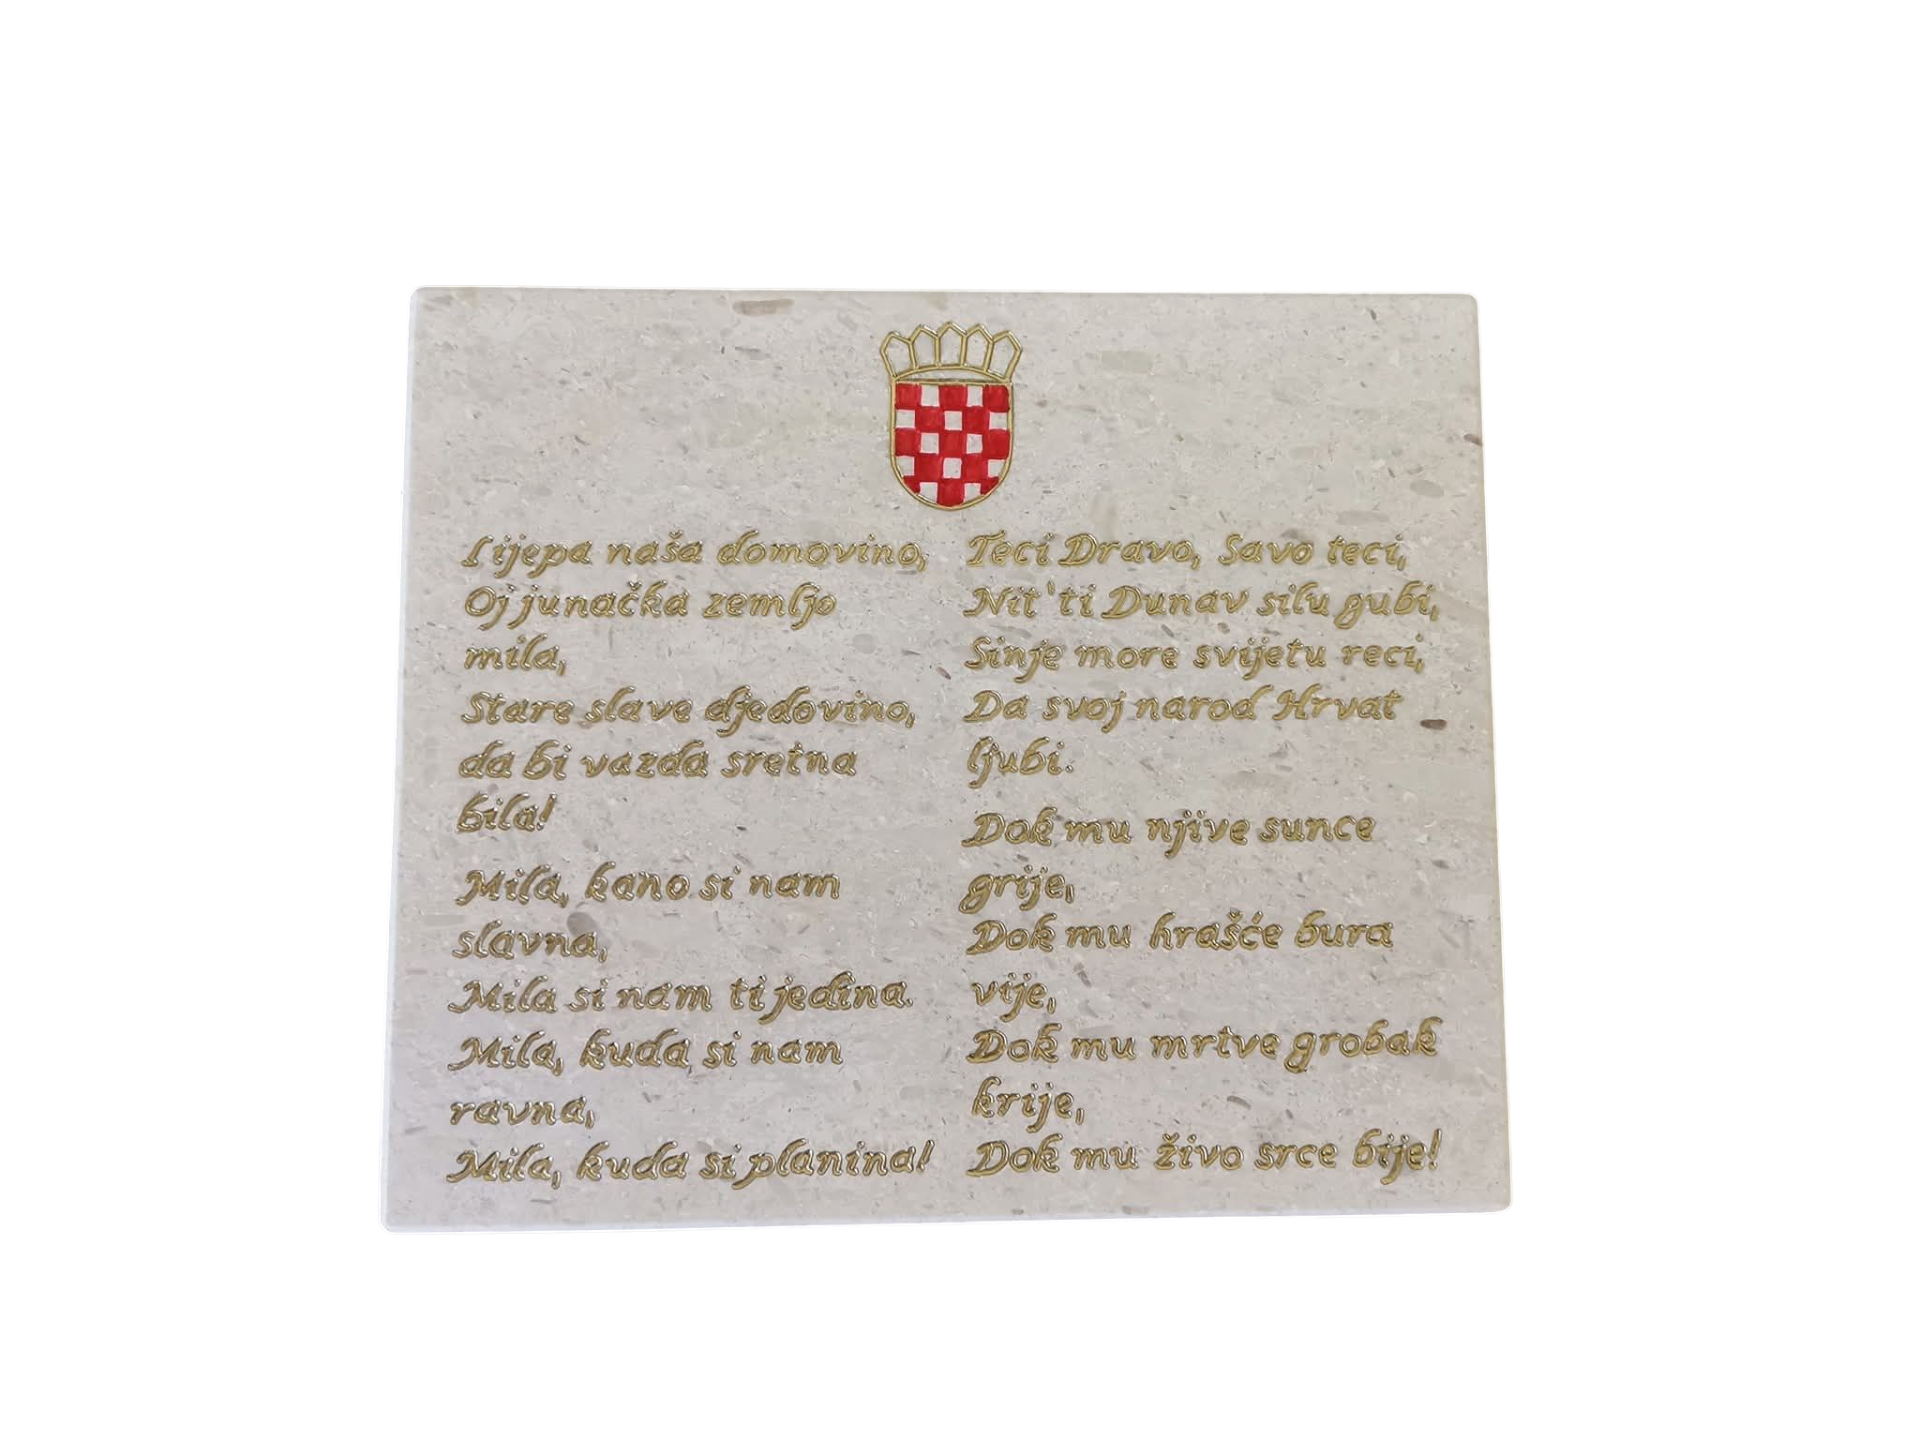 Lijepa naša domovino,
Oj junačka zemljo
mila,
Stare slave djedovino,
da bi vazda sretna
bila!
Mila, kano si nam
slavna,
Mila si nam ti jedina.
Mila, kuda si nam
ravna,
Mila, kuda si planina!
Teci Dravo, Savo teci,
Nit' ti Dunav silu gubi,
Sinje more svijetu reci,
Da svoj narod Hrvat
ljubi.
Dok mu njive sunce
grije,
Dok mu hrašće bura
vije,
Dok mu mrtve grobak
krije,
Dok mu živo srce bije!